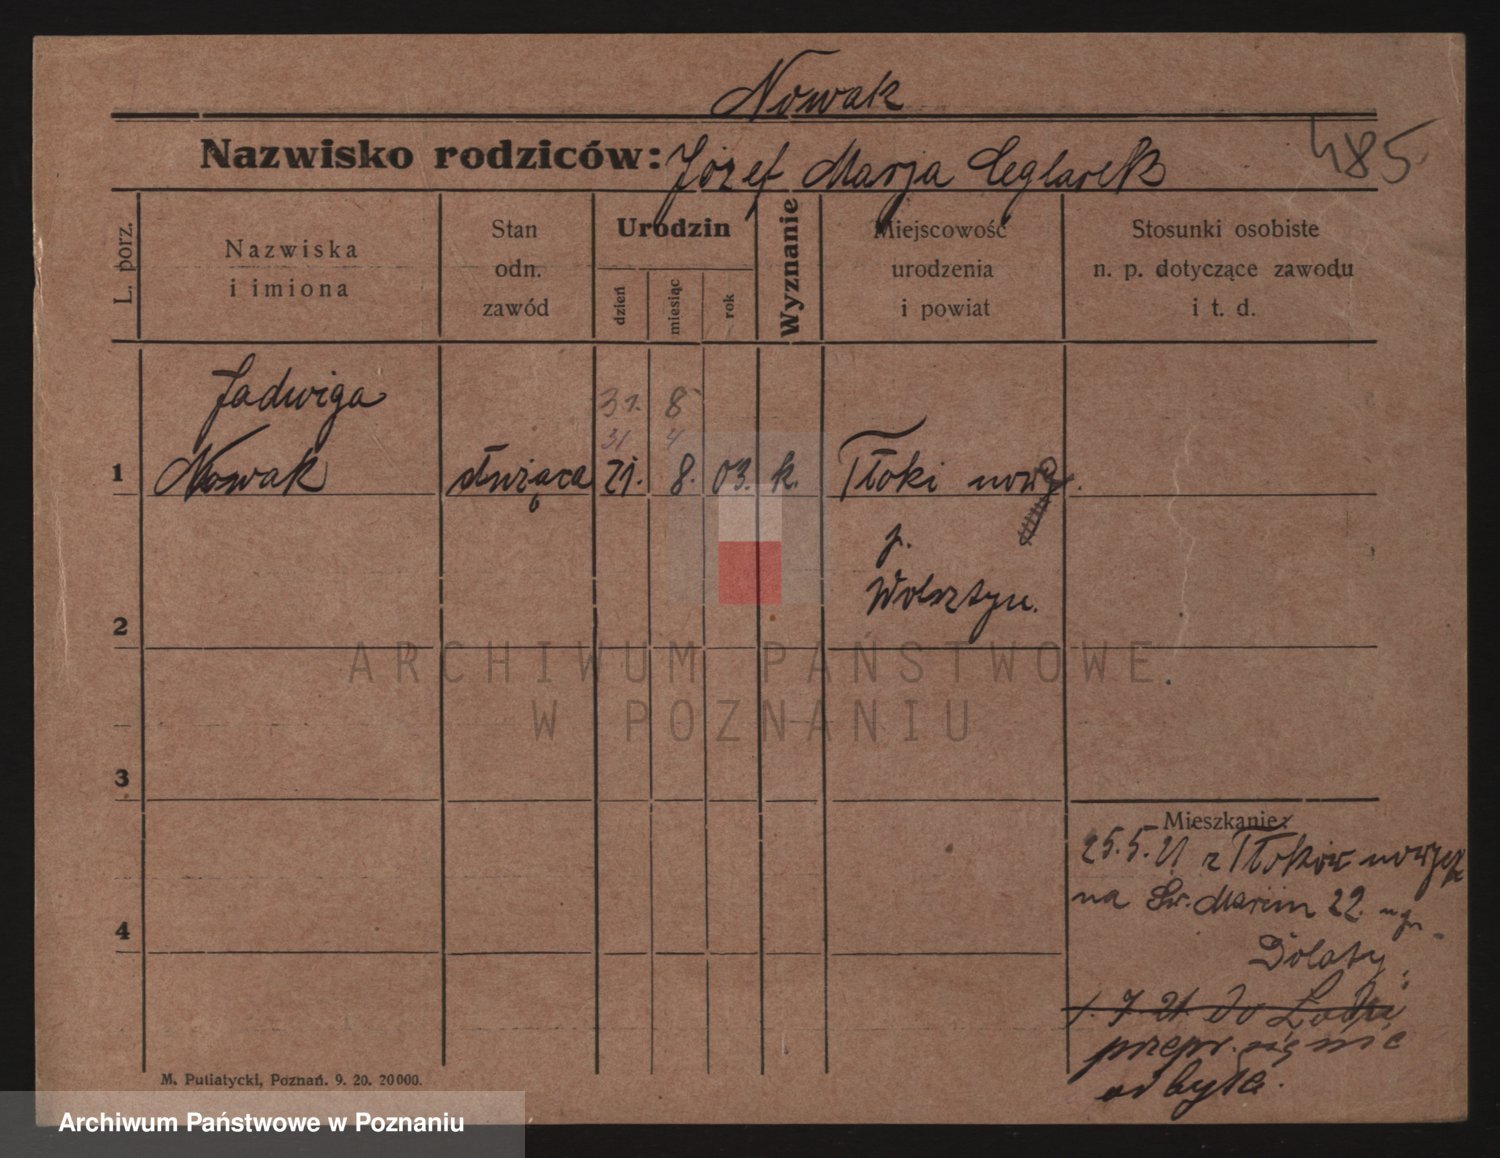 Nowak
Nazwisko rodziców: Józef Marja Ceglarek
485
L. porz.
Nazwiska
i imiona
Stan
odn.
zawód
Urodzin
dzień
miesiąc
rok
Wyznanie
Miejscowość
urodzenia
i powiat
Stosunki osobiste
n. p. dotyczące zawodu
i t. d.
Jadwiga
31. 8
31 4
1 Nowak służąca 21. 8. 03. k. Tłoki nowe.
p.
Wolsztyn.
2
ARCHIWUM PAŃSTWOWE
W POZNANIU
3
Mieszkanie:
25.5.21 z Tłoków nowych
na Św. Marcin 22.
Dolaty
1. 7 21 do Łodzi
przepr. się nie
odbyła.
4
M. Putiatycki, Poznań. 9. 20. 20000.
Archiwum Państwowe w Poznaniu